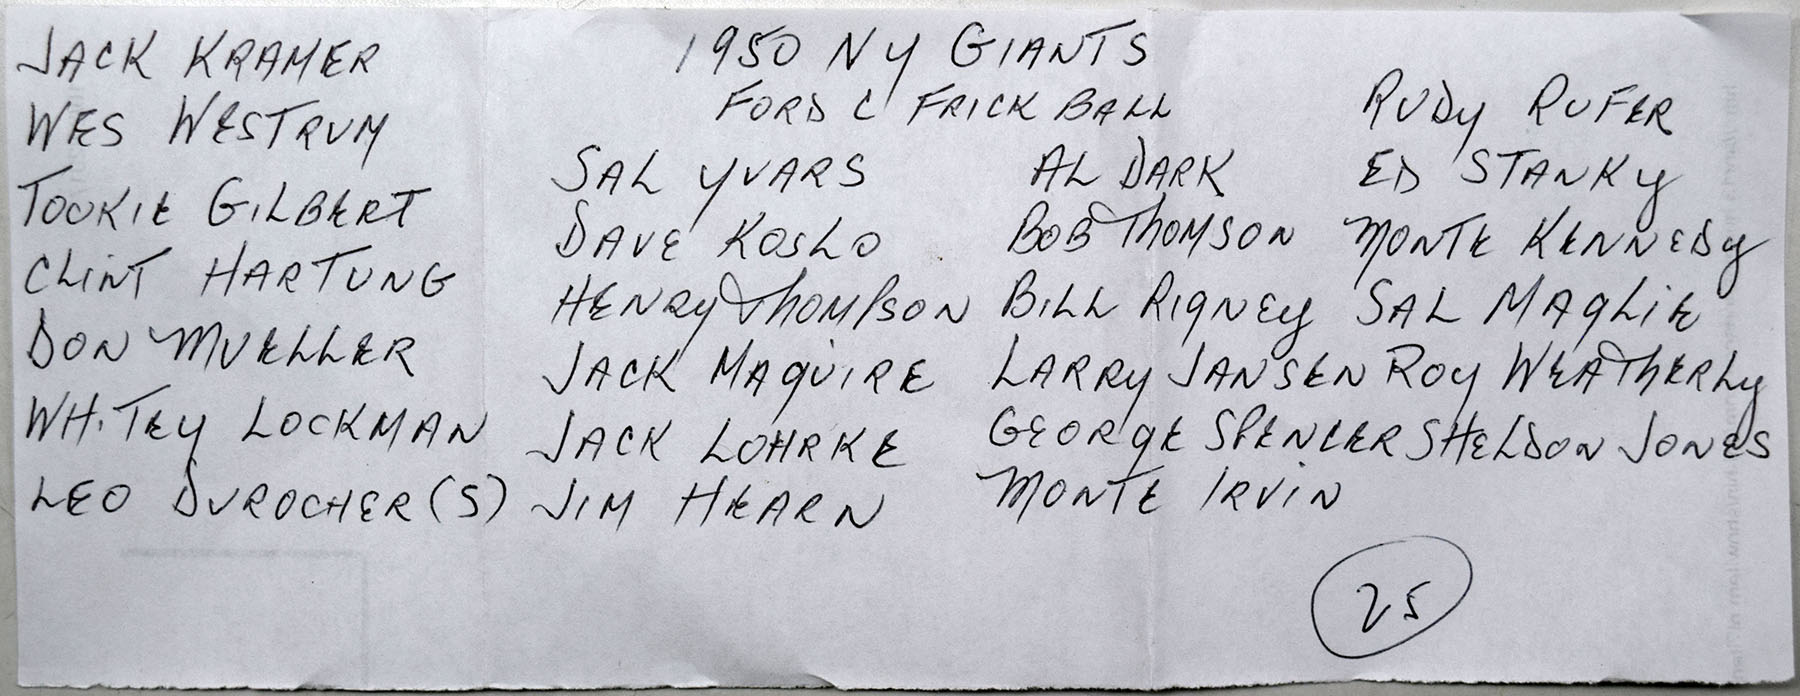 1950 NY GIANTS
FORD C FRICK BALL
JACK KRAMER
WES WESTRUM
TOOKIE GILBERT
CLINT HARTUNG
DON MUELLER
WHITEY LOCKMAN
LEO DUROCHER (S)
SAL YVARS
DAVE KOSLO
HENRY THOMPSON
JACK MAGUIRE
JACK LOHRKE
JIM HEARN
AL DARK
BOB THOMSON
BILL RIGNEY
LARRY JANSEN
GEORGE SPENCER
MONTE IRVIN
RUDY RUFER
ED STANKY
MONTE KENNEDY
SAL MAGLIE
ROY WEATHERLY
SHELDON JONES
25